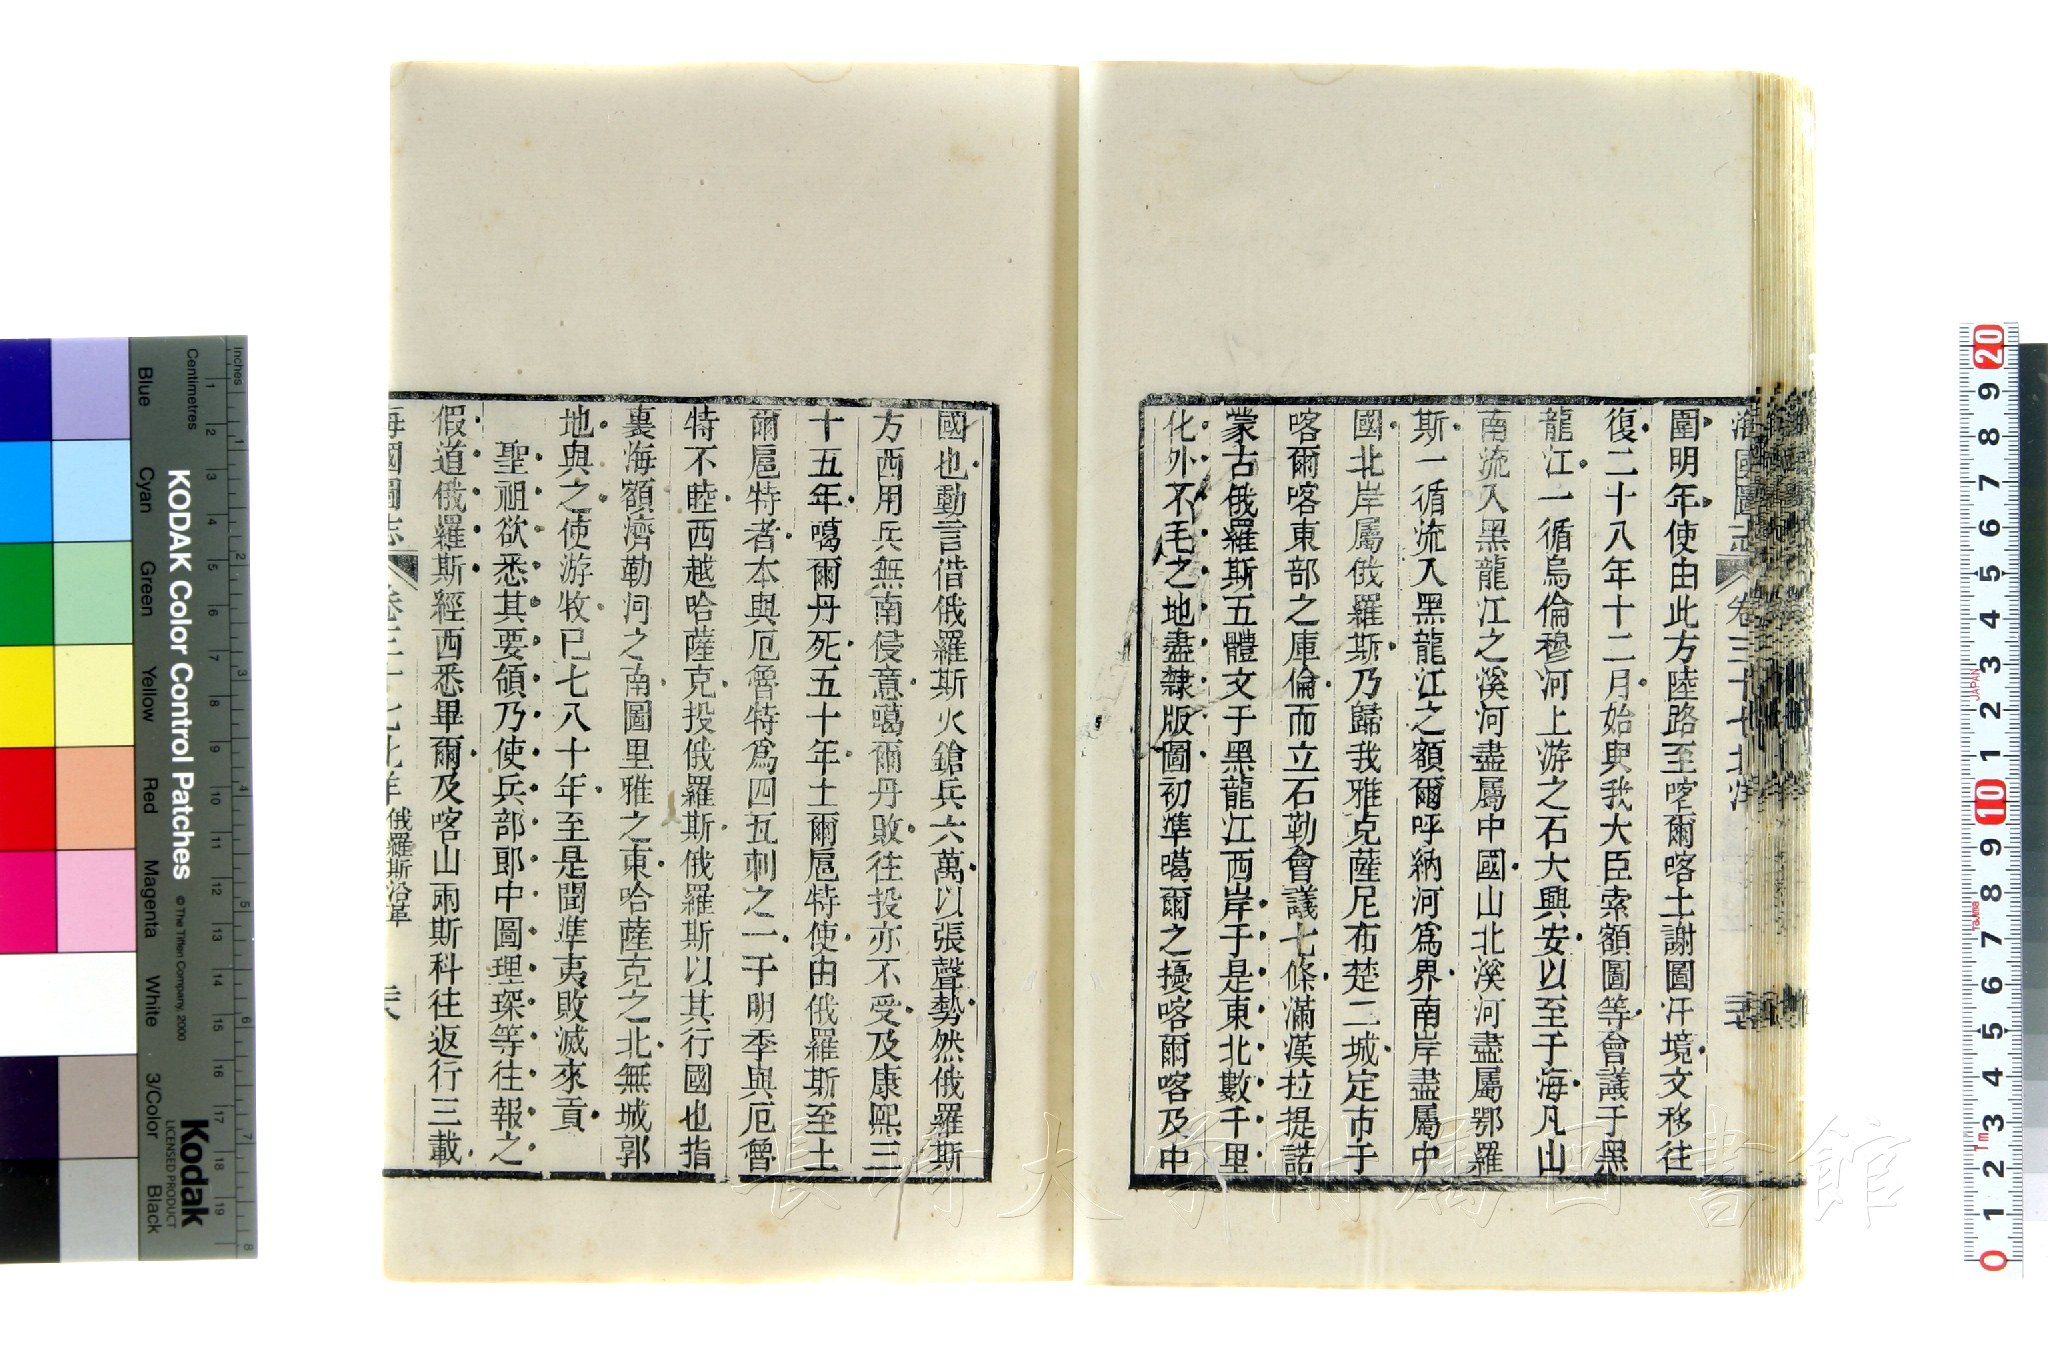 海國圖志 卷三十七 北洋
圍明年使由此方陸路至喀爾喀土謝圖汗境文移往
復二十八年十二月始與我大臣索額圖等會議于黑
龍江一循烏倫穆河上游之石大興安以至于海凡山
南流入黑龍江之溪河盡屬中國山北溪河盡屬鄂羅
斯一循流入黑龍江之額爾呼納河爲界南岸盡屬中
國北岸屬俄羅斯乃歸我雅克薩尼布楚二城定市于
喀爾喀東部之庫倫而立石勒會議七條滿漢拉提諾
蒙古俄羅斯五體文于黑龍江西岸于是東北數千里
化外不毛之地盡隸版圖初準噶爾之擾喀爾喀及中
國也動言借俄羅斯火鎗兵六萬以張聲勢然俄羅斯
方西用兵無南侵意噶爾丹敗往投亦不受及康熙三
十五年噶爾丹死五十年土爾扈特使由俄羅斯至土
爾扈特者本與厄魯特爲四瓦刺之一于明季與厄魯
特不睦西越哈薩克投俄羅斯俄羅斯以其行國也指
裏海額濟勒河之南圖里雅之東哈薩克之北無城郭
地與之使游牧已七八十年至是聞準夷敗滅來貢
聖祖欲悉其要領乃使兵部郎中圖理琛等往報之
假道俄羅斯經西悉畢爾及喀山兩斯科往返行三載
海國圖志 卷三十七 北洋 俄羅斯沿革
KODAK Color Control Patches
© The Tiffen Company, 2000
Kodak
LICENSED PRODUCT
Inches
Centimetres
Blue
Cyan
Green
Yellow
Red
Magenta
White
3/Color
Black
1 2 3 4 5 6 7 8 9 10 11 12 13 14 15 16 17 18 19
1 2 3 4 5 6 7 8
20 9 8 7 6 5 4 3 2 1 10 9 8 7 6 5 4 3 2 1 0
JAPAN
Tajima
1m
長崎大学附属図書館